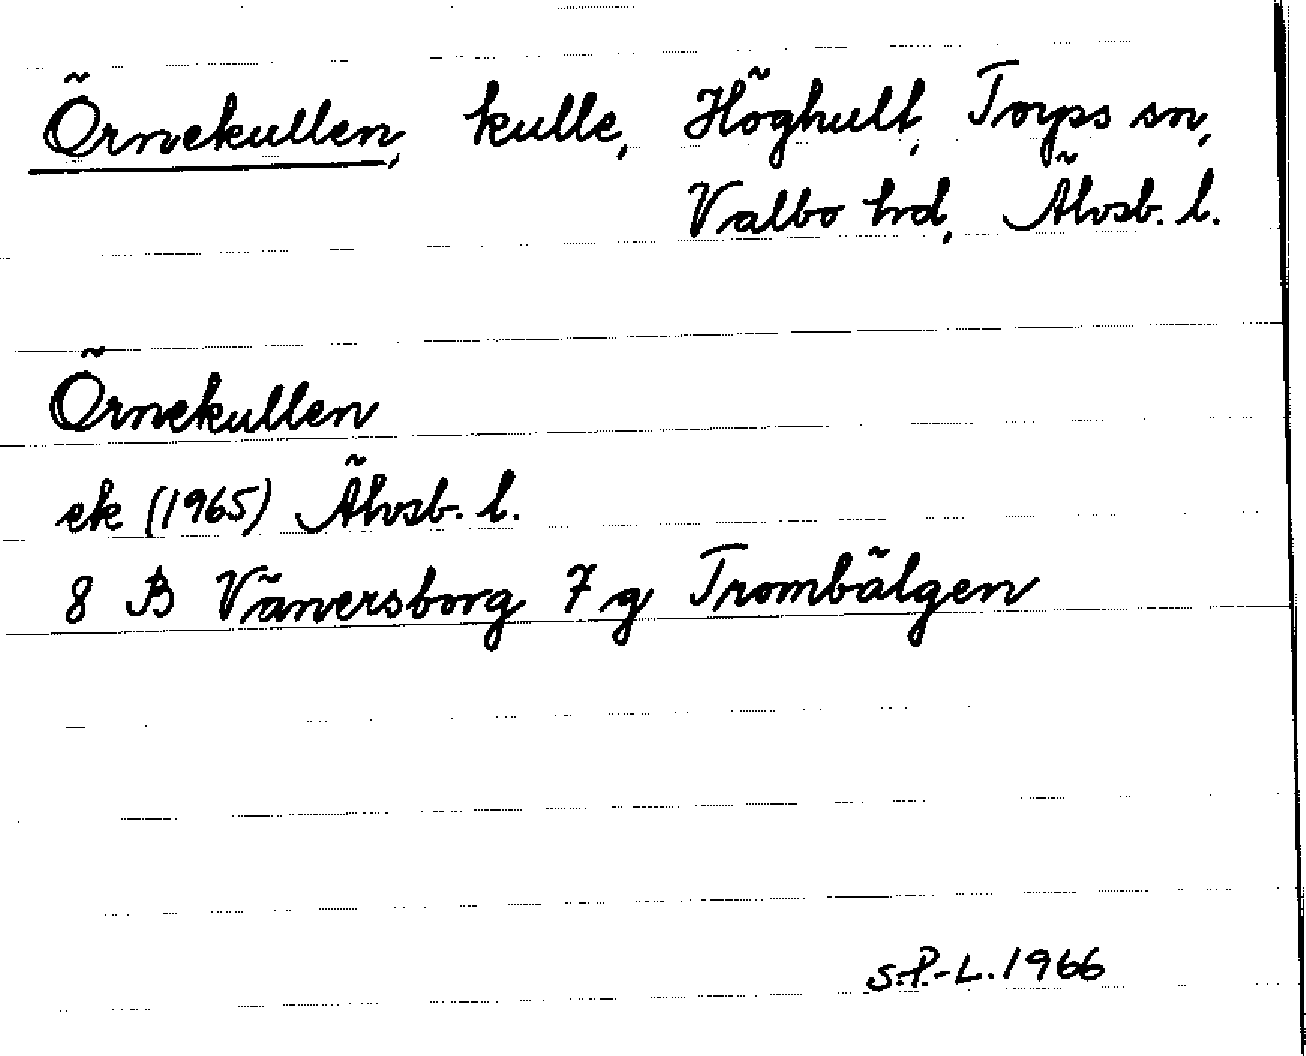 Örnekullen, kulle, Höghult, Torps sn,
Valbo hd, Älvsb. l.
Örnekullen
ek (1965) Älvsb. l.
8 B Vänersborg 7 g Trombälgen
S.P.-L. 1966